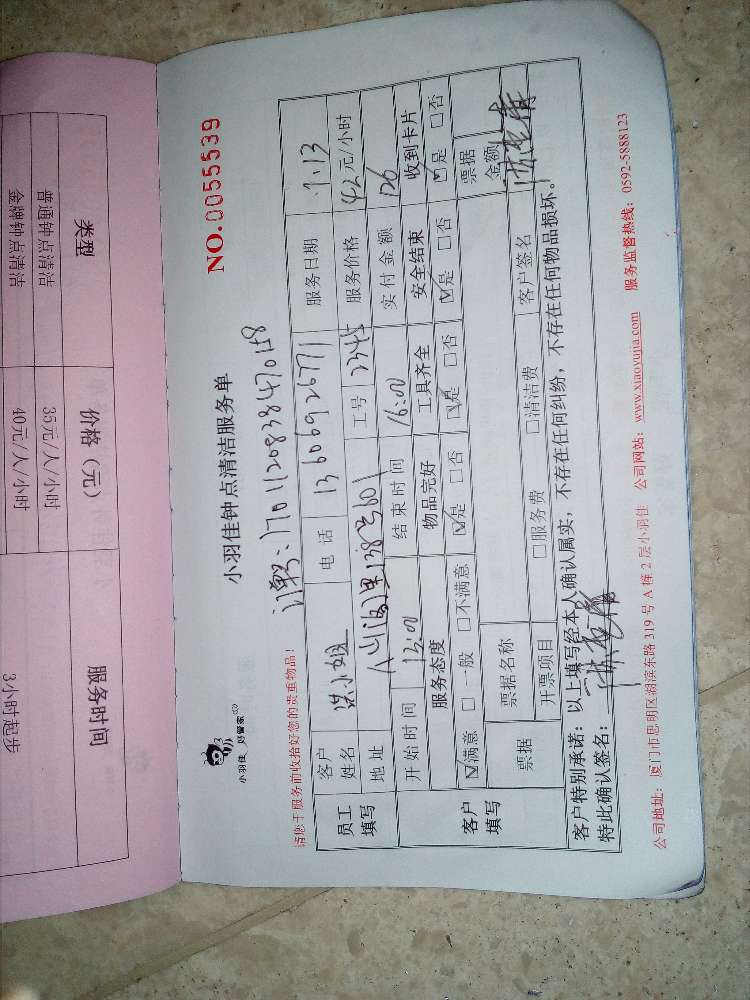 类型
价格（元）
服务时间
普通钟点清洁
35元/人/小时
3小时起步
金牌钟点清洁
40元/人/小时
小羽佳 好管家
小羽佳钟点清洁服务单
NO.0055539
请您于服务前收拾好您的贵重物品！
员工填写
客户姓名
洪小姐
电话
13606926771
服务日期
1.13
地址
工号
2345
服务价格
42元/小时
开始时间
13:00
结束时间
16:00
实付金额
126
客户填写
服务态度
物品完好
工具齐全
安全结束
收到卡片
☑满意 □一般 □不满意
☑是 □否
☑是 □否
☑是 □否
☑是 □否
票据
票据名称
票据金额
开票项目
□服务费 □清洁费
客户签名
客户特别承诺：以上填写经本人确认属实，不存在任何纠纷，不存在任何物品损坏。
特此确认签名：
公司地址：厦门市思明区湖滨东路319号A幢2层小羽佳 公司网站：www.xiaoyujia.com 服务监督热线：0592-5888123